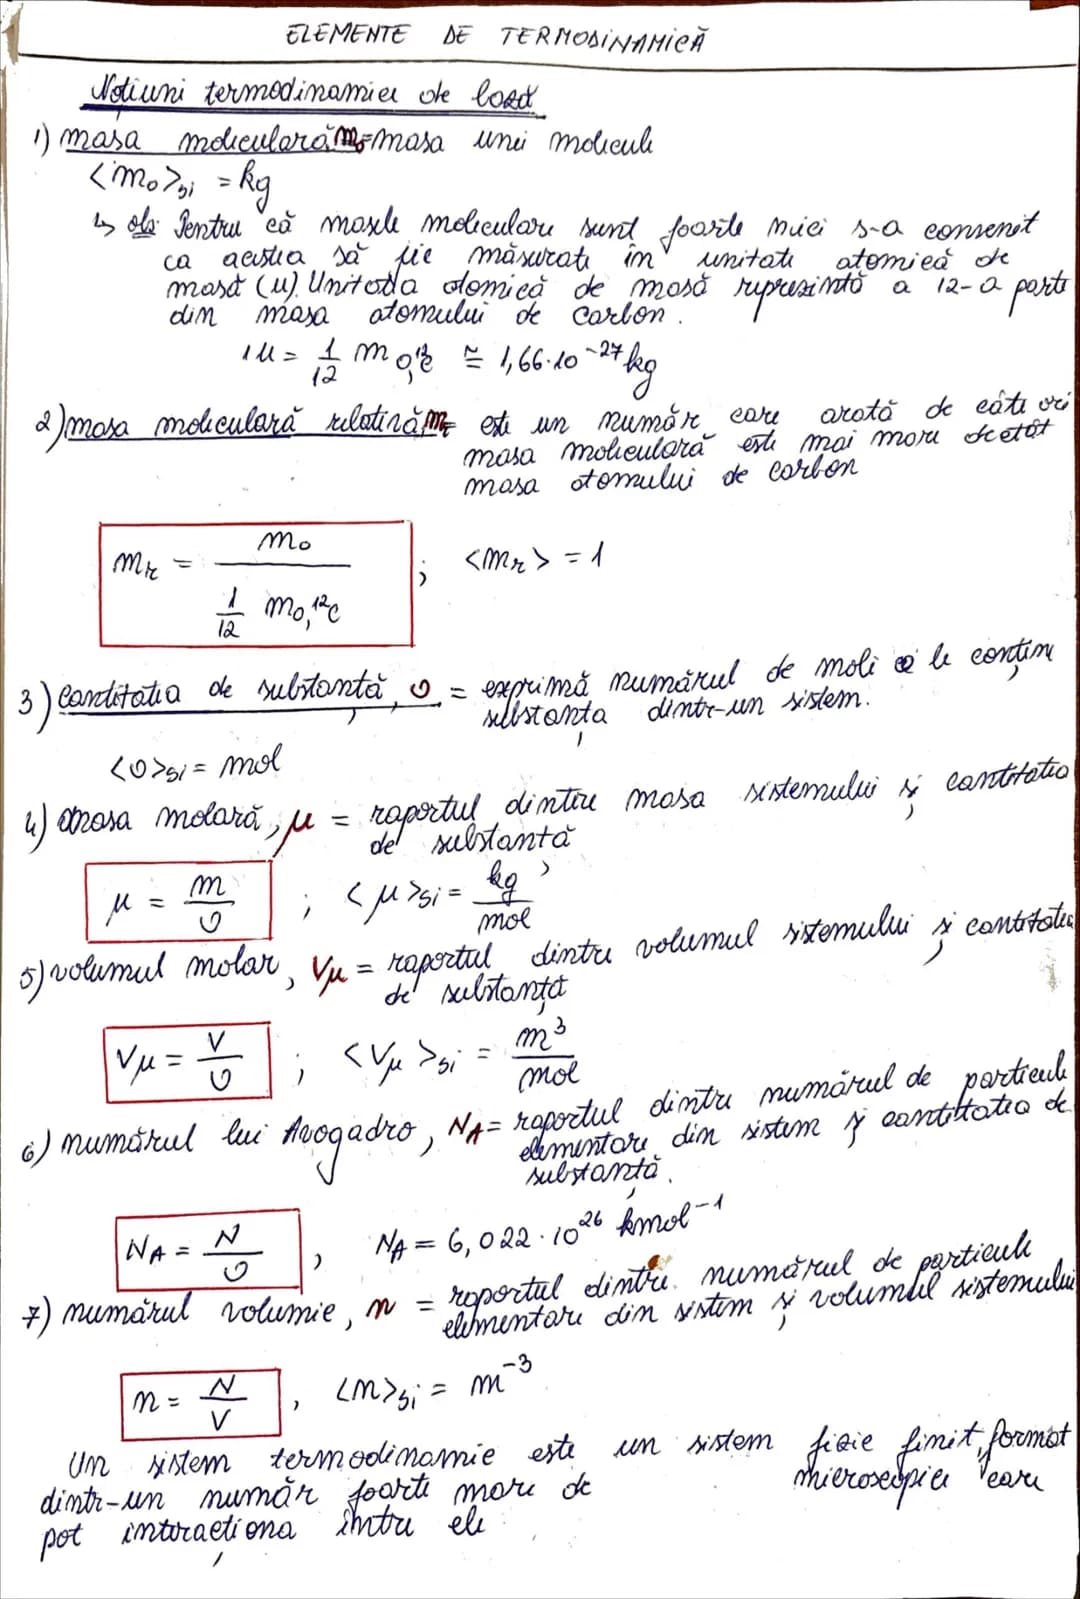 ELEMENTE DE TERMODINAMICĂ
Noțiuni termodinamice de bază
1) masa moleculară m₀=masa unei molecule
<m₀>si = kg
↳ obs: Pentru că masele moleculare sunt foarte mici s-a convenit
ca acestea să fie măsurate în unitate atomică de
masă (u). Unitatea atomică de masă reprezintă a 12-a parte
din masa atomului de carbon.
1u = 1/12 m₀,¹²C ≅ 1,66·10⁻²⁷ kg
2) masa moleculară relativă mᵣ= este un număr care arată de câte ori
masa moleculară este mai mare decât
masa atomului de carbon
mᵣ = m₀ / (1/12 m₀,¹²C) ; <mᵣ> = 1
3) cantitatea de substanță, υ = exprimă numărul de moli ce le conține
substanța dintr-un sistem.
<υ>si = mol
4) masa molară, μ = raportul dintre masa sistemului și cantitatea
de substanță
μ = m/υ ; <μ>si = kg/mol
5) volumul molar, Vμ = raportul dintre volumul sistemului și cantitatea
de substanță
Vμ = V/υ ; <Vμ>si = m³/mol
6) numărul lui Avogadro, NA= raportul dintre numărul de particule
elementare din sistem și cantitatea de
substanță.
NA = N/υ , NA = 6,022·10²⁶ kmol⁻¹
7) numărul volumic, n = raportul dintre numărul de particule
elementare din sistem și volumul sistemului
n = N/V , <n>si = m⁻³
Un sistem termodinamic este un sistem fizic finit, format
dintr-un număr foarte mare de microscopice care
pot interacționa între ele